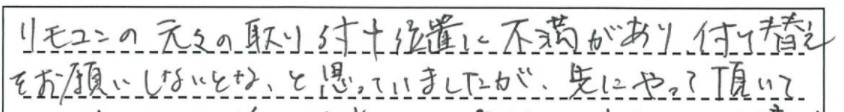 リモコンの元々の取り付け位置に不満があり、付け替え
をお願いしないとな、と思っていましたが、先にやって頂いて